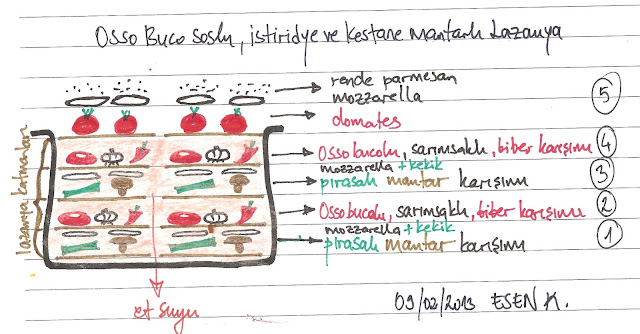 Osso Buco Soslu, istiridye ve Kestane Mantarlı Lazanya
rende parmesan
mozzarella
domates
5
Osso bucolu, sarımsaklı, biber karışımı
4
mozzarella + kekik
pırasalı mantar karışımı
3
Osso bucolu, sarımsaklı, biber karışımı
2
mozzarella + kekik
pırasalı mantar karışımı
1
lazanya katmanları
et suyu
09/02/2013 ESEN K.